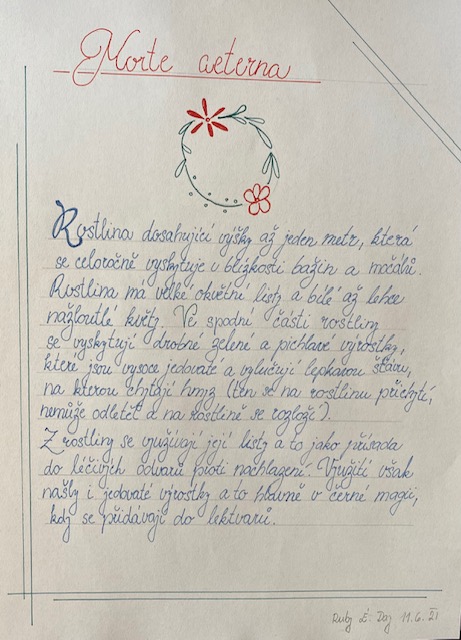 Morte aeterna
Rostlina dosahující výšky až jeden metr, která
se celoročně vyskytuje v blízkosti bažin a močálů.
Rostlina má velké okvětní listy a bílé až lehce
nažloutlé květy. Ve spodní části rostliny
se vyskytují drobné zelené a pichlavé výrostky,
které jsou vysoce jedovaté a vylučují lepkavou šťávu,
na kterou chytají hmyz (ten se na rostlinu přichytí,
nemůže odletět a na rostlině se rozloží).
Z rostliny se využívají její listy a to jako přísada
do léčivých odvarů proti nachlazení. Využití však
našly i jedovaté výrostky a to hlavně v černé magii,
kdy se přidávají do lektvarů.
Ruby 11.6.21